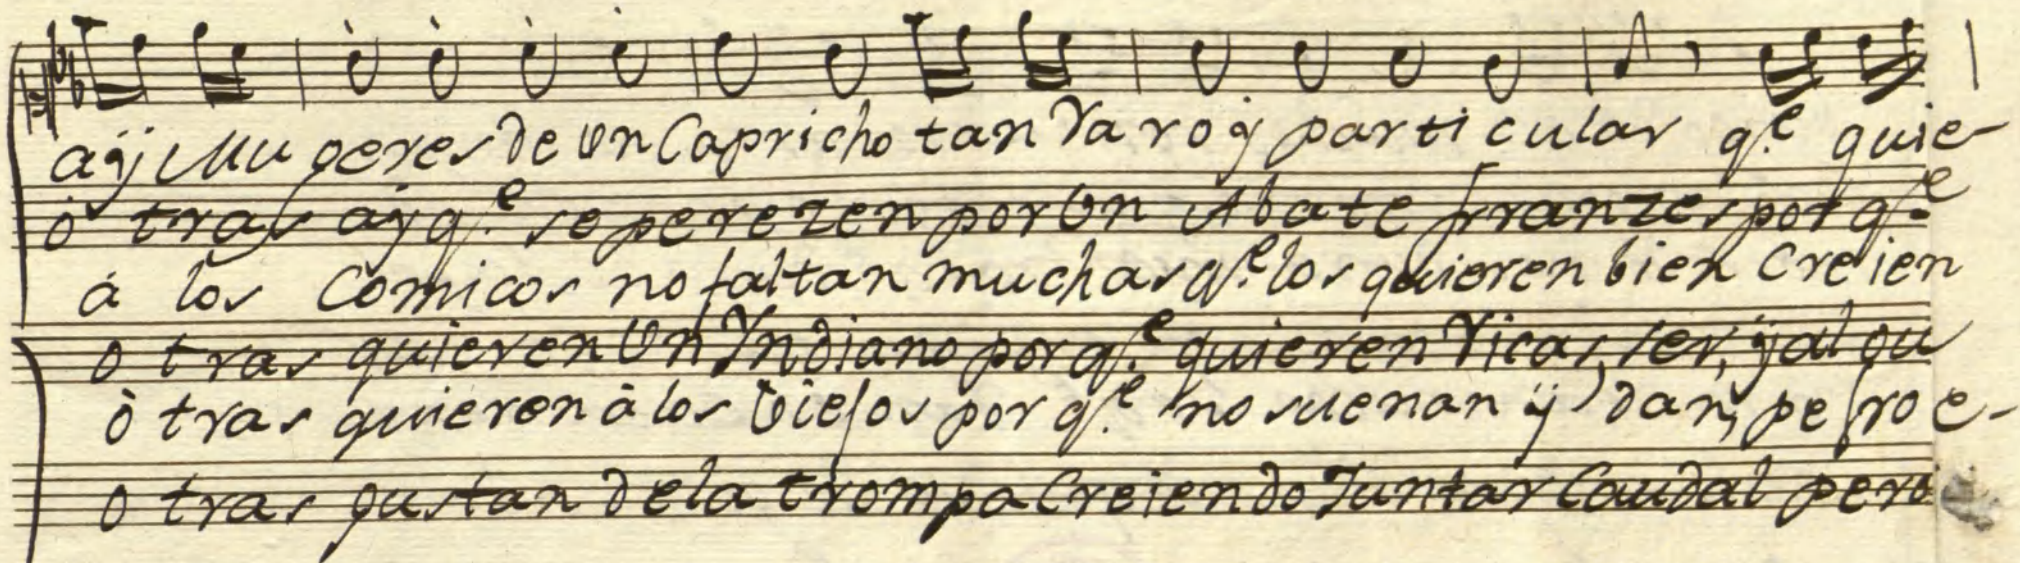 aÿ Mugeres de un Capricho tan Raro ÿ particular q.e quie-
ò tras aÿ q.e se perezen por Un Abate franzes por q.e
à los Comicos no faltan muchas q.e los quieren bien Creien
o tras quieren Un Yndiano por q.e quieren Ricas, ser, ÿ algu
ò tras quieren à los Viejos por q.e no suenan ÿ dan, pero e-
o tras gustan de la trompa Creiendo Juntar Caudal pero